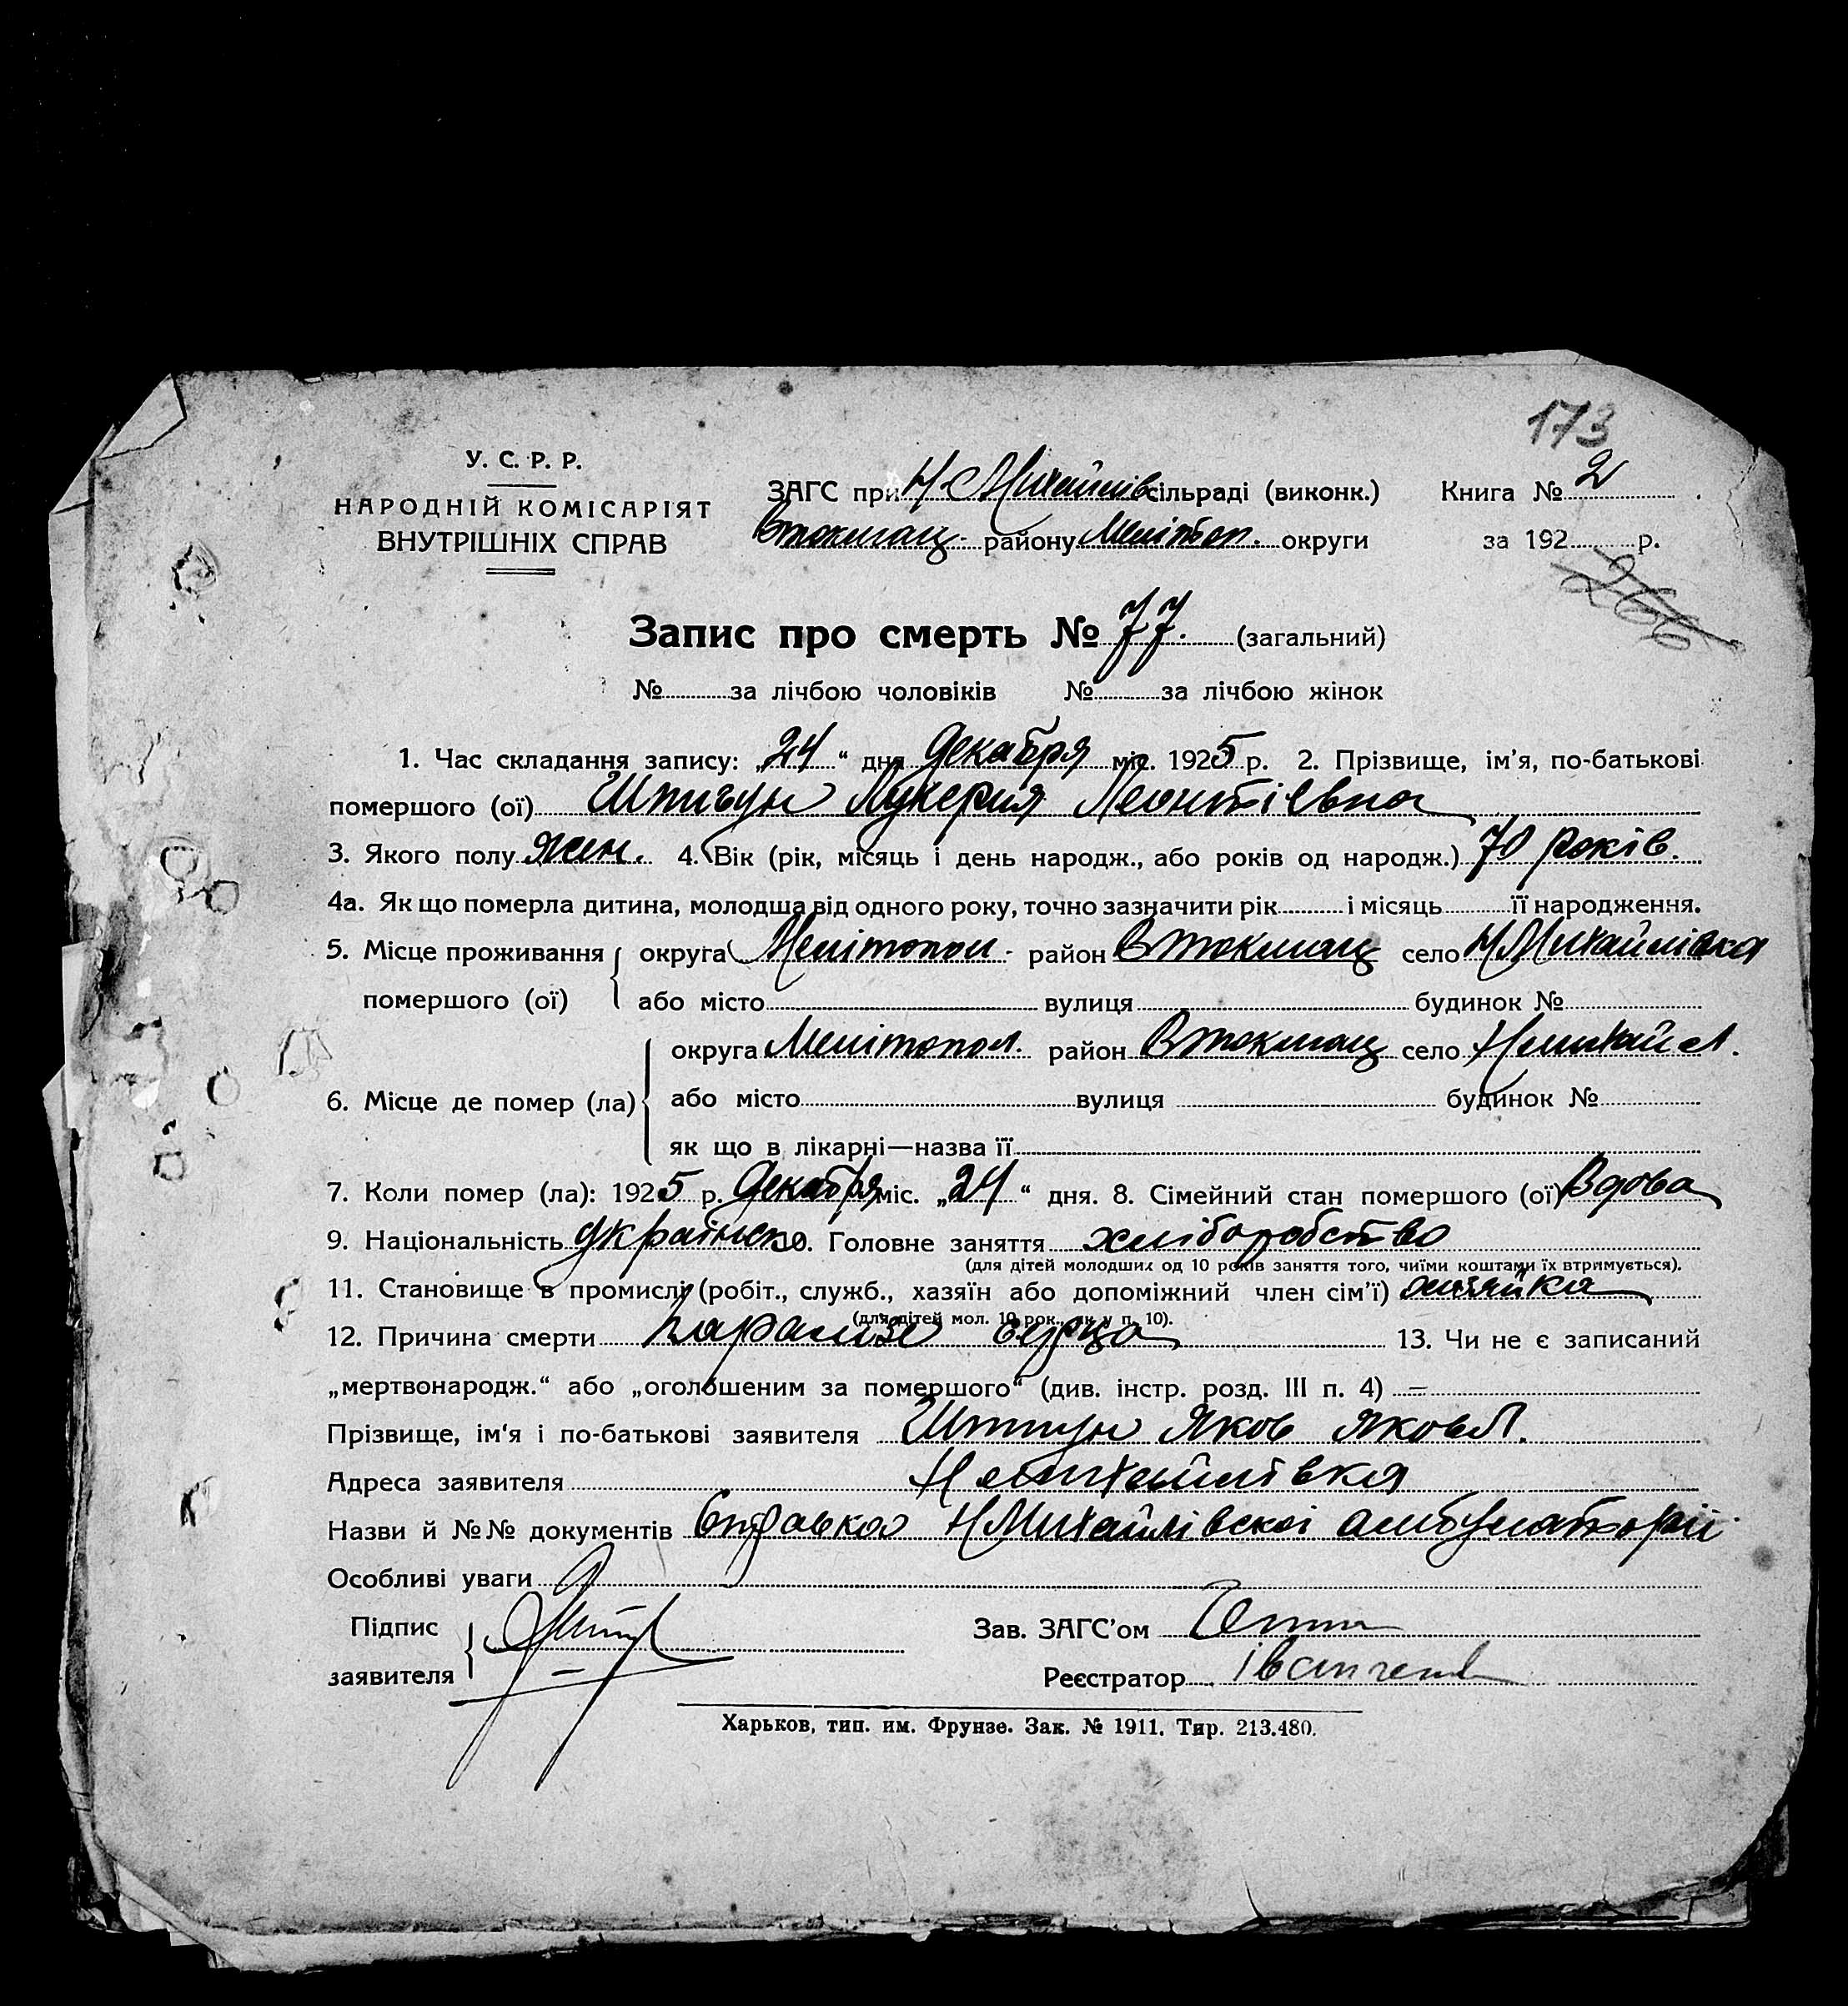 173
У. С. Р. Р.
НАРОДНІЙ КОМІСАРІЯТ
ВНУТРІШНІХ СПРАВ
ЗАГС при Н-Михайлів сільраді (виконк.) Книга № 2
Втокмац. району Мелітоп. округи за 192 р.
266
Запис про смерть № 77. (загальний)
№ за лічбою чоловіків № за лічбою жінок
1. Час складання запису: „24“ дня декабря міс. 1925 р. 2. Прізвище, ім'я, по-батькові
помершого (ої) Лукерия Леонтіевна
3. Якого полу жен. 4. Вік (рік, місяць і день народж., або років од народж.) 70 років.
4а. Як що померла дитина, молодша від одного року, точно зазначити рік і місяць її народження.
5. Місце проживання округа Мелітопол. район Втокмац село Н Михайлівка
помершого (ої) або місто вулиця будинок №
округа Мелітопол. район Втокмац село Н михайл.
6. Місце де помер (ла) або місто вулиця будинок №
як що в лікарні—назва її
7. Коли помер (ла): 1925 р. декабря міс. „24“ дня. 8. Сімейний стан помершого (ої) Вдова
9. Національність українск 10. Головне заняття хліборобство
(для дітей молодших од 10 років заняття того, чиїми коштами їх втримується).
11. Становище в промислі (робіт., служб., хазяїн або допоміжний член сім'ї) хазяйка
(для дітей мол. 10 рок., як у п. 10).
12. Причина смерти паралізе серца 13. Чи не є записаний
„мертвонародж.“ або „оголошеним за помершого“ (див. інстр. розд. III п. 4) —
Прізвище, ім'я і по-батькові заявителя Яков Яковл.
Адреса заявителя Н Михайлівка
Назви й №№ документів Справка Н Михайлівскоі амбулаторіі
Особливі уваги
Підпис
заявителя
Зав. ЗАГС'ом
Реєстратор Іванченко
Харьков, тип. им. Фрунзе. Зак. № 1911. Тир. 213.480.